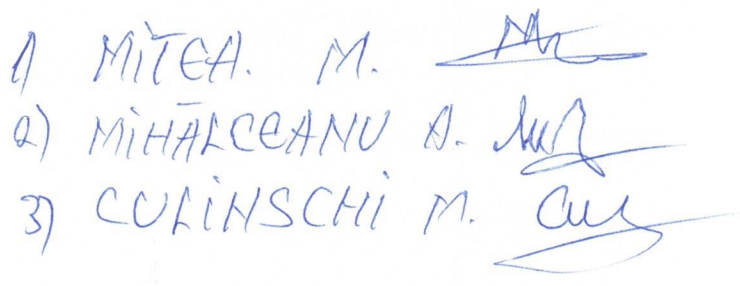 1) MITEA. M.
2) MIHĂLCEANU A.
3) CULINSCHI M.